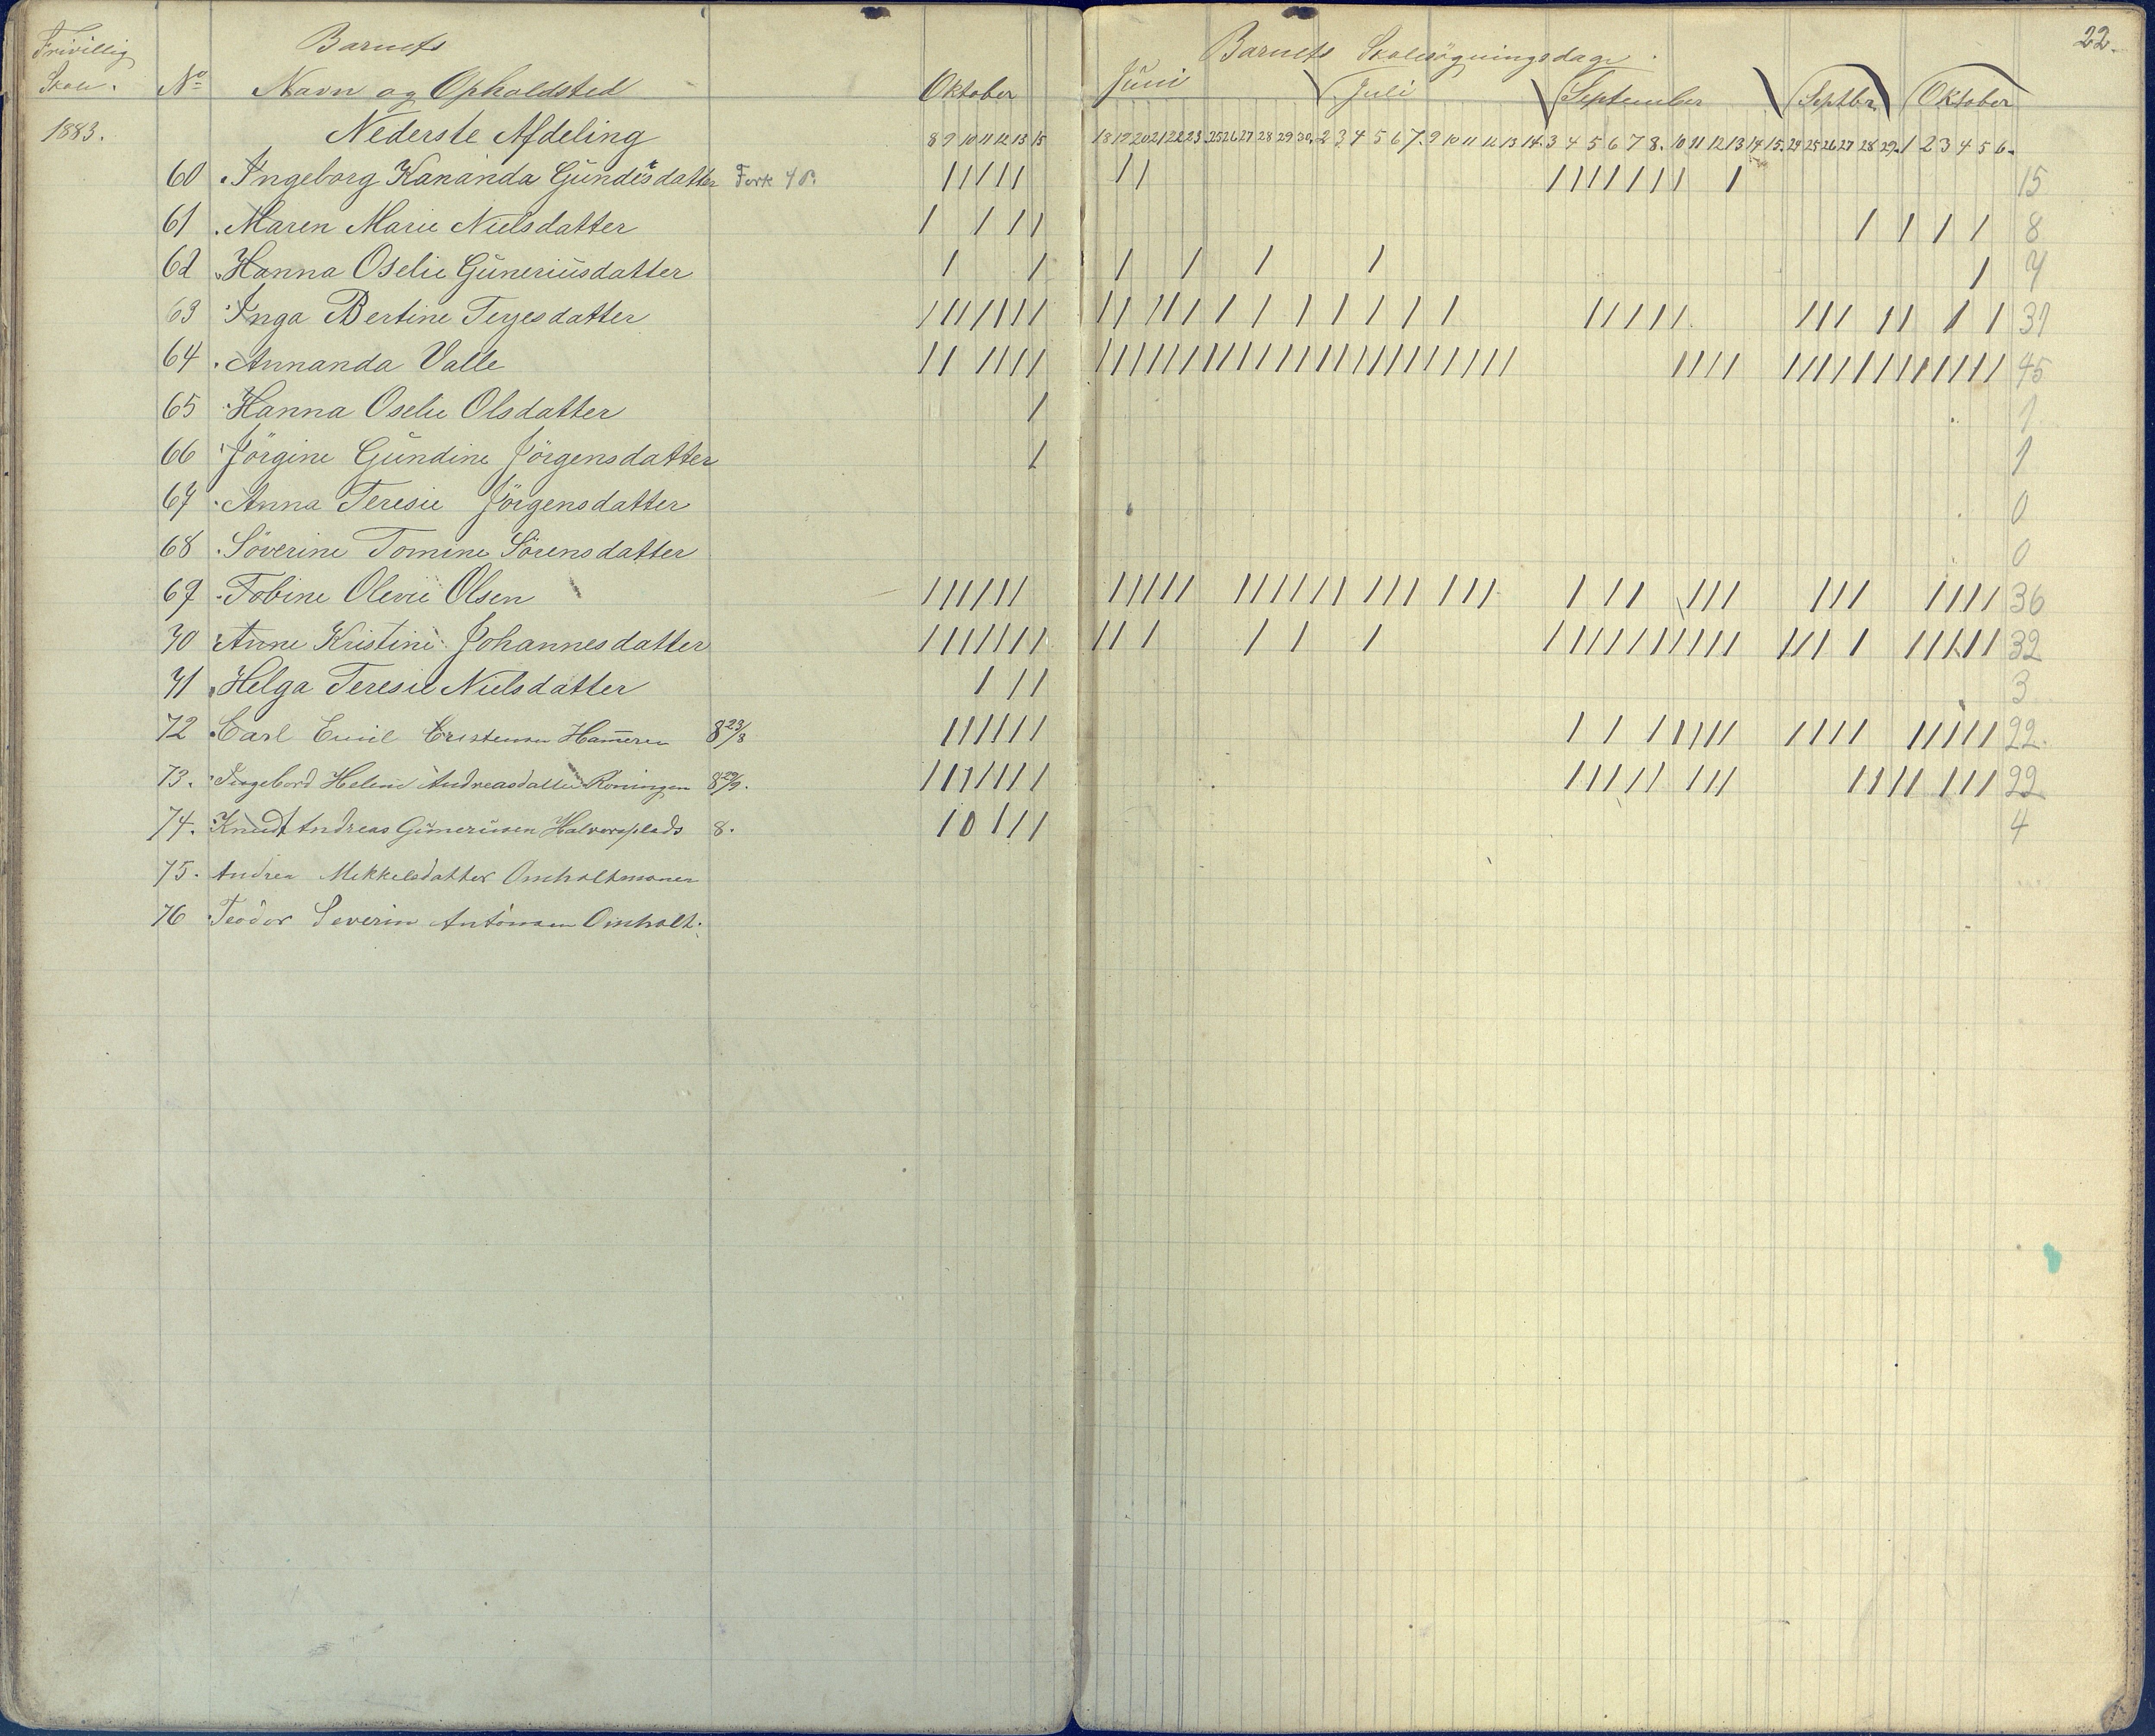 22.
Frivillig Barnets Barnets Skolesögningsdage.
Skole. No Navn og Opholdsted Oktober Juni Juli September Septbr. Oktober
1883. Nederste Afdeling 8 9 10 11 12 13 15 18 19 20 21 22 23. 25 26 27 28 29 30. 2 3 4 5 6 7. 9 10 11 12 13 14. 3 4 5 6 7 8. 10 11 12 13 14 15. 24 25 26 27 28 29. 1 2 3 4 5 6.
60 Ingeborg Kananda datter 15
61 Maren Marie Nielsdatter 8
62 Hanna Oselie Güneriüsdatter 7
63 Inga Bertine Terjesdatter 31
64 Annanda Valle 45
65 Hanna Oselie Olsdatter 1
66 Jörgine Gündine Jörgensdatter 1
67 Anna Teresie Jörgensdatter 0
68 Söverine Tomine Sörensdatter 0
69 Tobine Olevie Olsen 36
70 Anne Kristine Johannesdatter 32
71 Helga Teresie Nielsdatter 3
72 Carl Emil Hameren 8 23/8 22.
73. Helene Andreasdatter Röningen 22
74. Knudt Andreas Günerüsen Halvorsplads 8. 4
75. Andrea Mikkelsdatter Omholtmoner
76 Teodor Severin Antonsen Omholt.